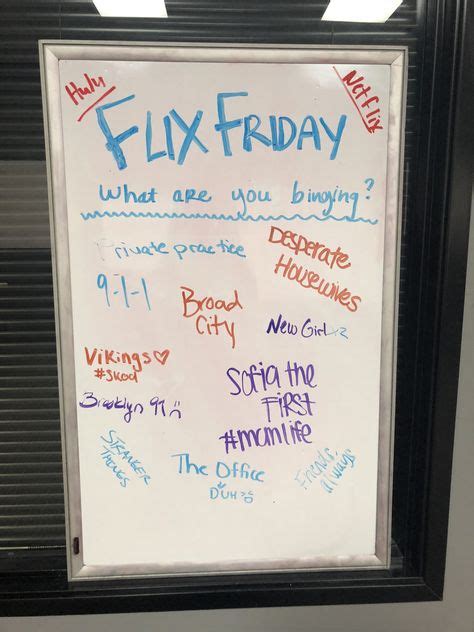 Hulu
Netflix
FLIX FRIDAY
What are you binging?
Private practice
Desperate
Housewives
9-1-1
Broad
City
New Girl x2
Vikings♡
#Skol
Sofia the
FIRST
#momlife
Brooklyn 99
STRANGER
THINGS
The Office
DUH
Friends,
always